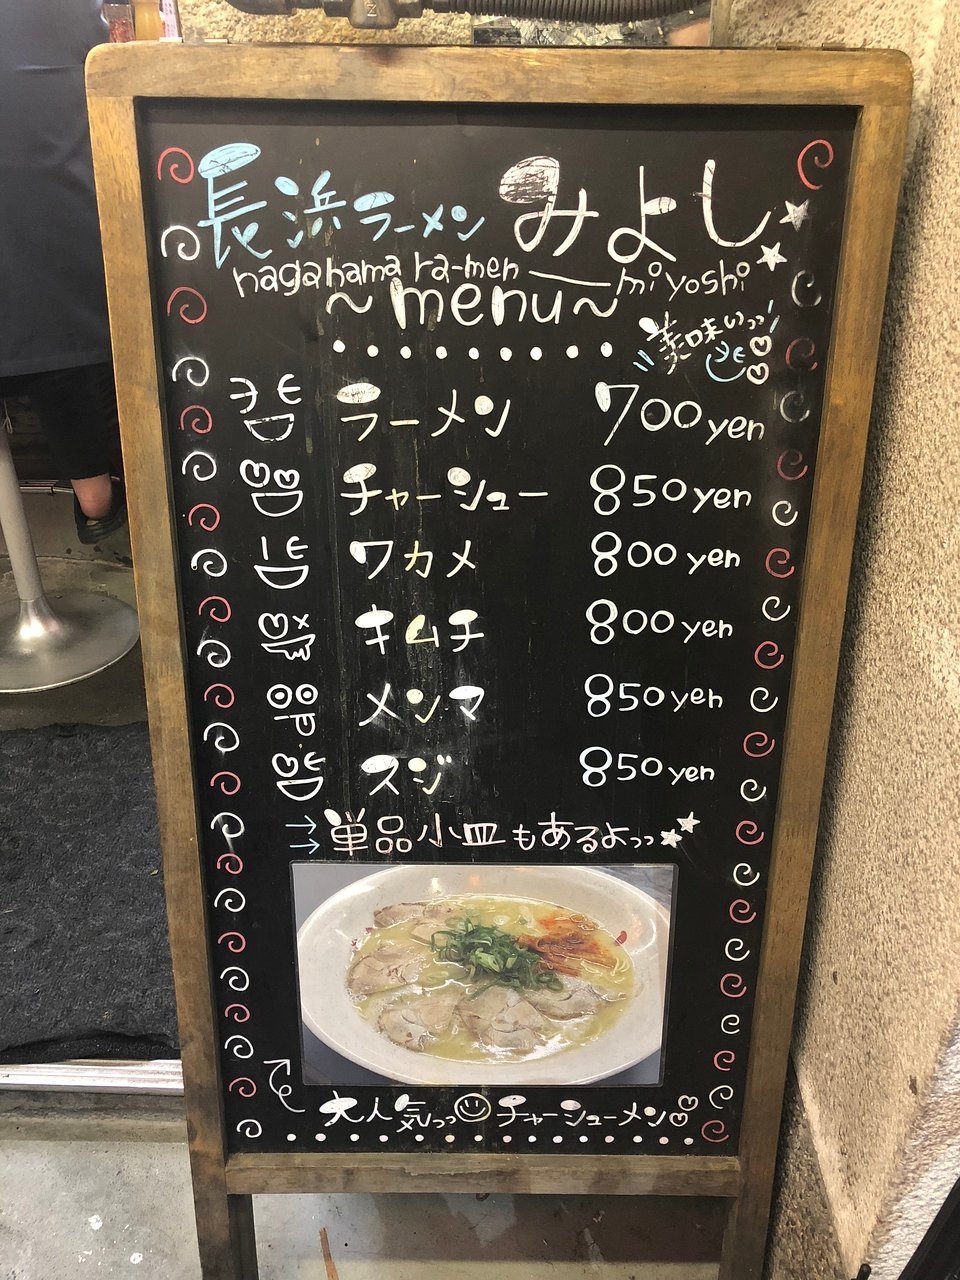 長浜ラーメン みよし
nagahama ra-men — miyoshi
~menu~
美味いっっ
ラーメン 700yen
チャーシュー 850yen
ワカメ 800yen
キムチ 800yen
メンマ 850yen
スジ 850yen
→ 単品小皿もあるよっっ
大人気っっ チャーシューメン